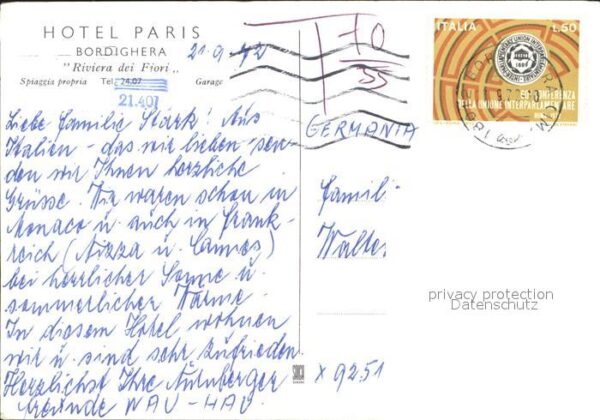 HOTEL PARIS
BORDIGHERA
"Riviera dei Fiori"
Spiaggia propria Tel. 24.07 Garage
21.407
21.9.72
T 70
55
ITALIA L.50
CONFERENZA
DELLA UNIONE INTERPARLAMENTARE
GERMANIA
Liebe Familie Stark! Aus
Italien - das wir lieben - sen-
den wir Ihnen herzliche
Grüsse. Wir waren schon in
Monaco u. auch in Frank-
reich (Nizza u. Cannes)
bei herrlicher Sonne u.
sommerlicher Wärme.
In diesem Hotel wohnen
wir u. sind sehr zufrieden
Herzlichst Ihre Nürnberger
freunde WAU-HAU
Famili
Walte
privacy protection
Datenschutz
x 9251